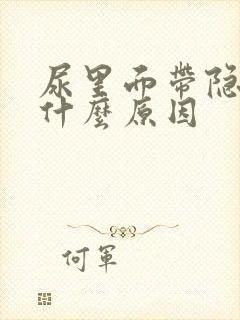 尿里而帶隐
什麼原因
何軍